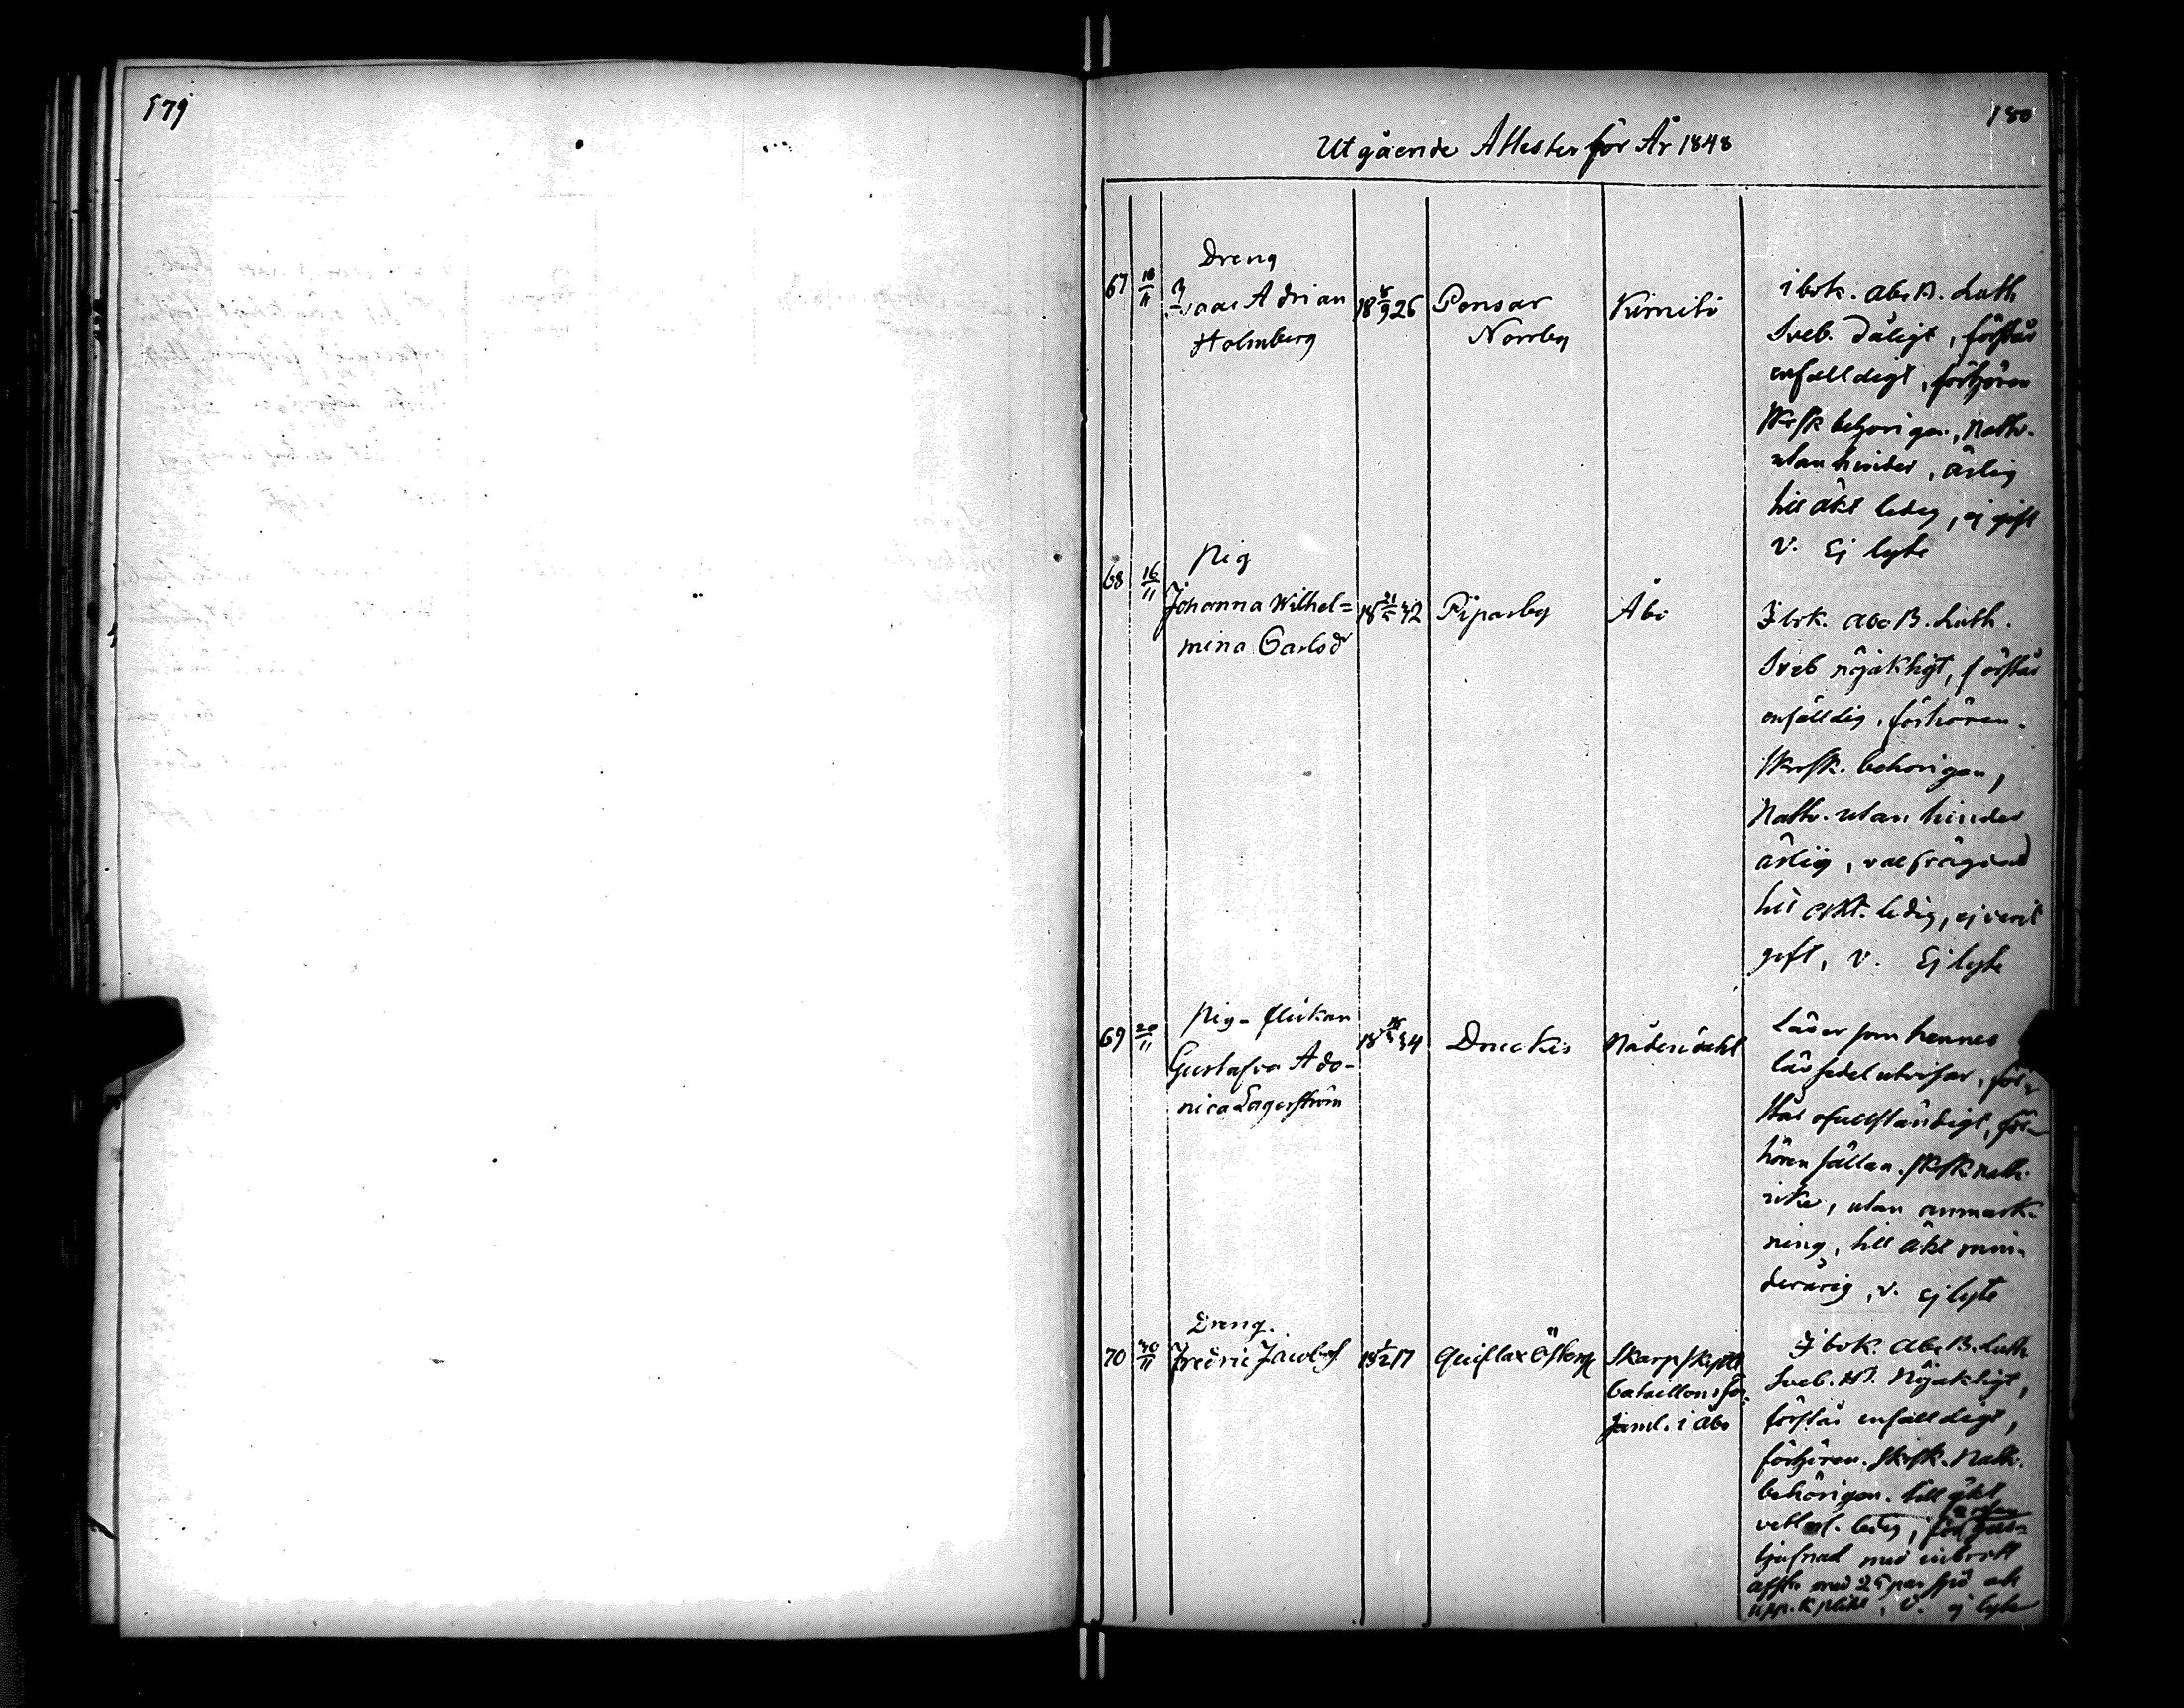 179
180
Utgående Attester för År 1848
67
Dreng
Isaac Adrian
Holmberg
18 8/9 26
Ponsar
Norrby
Kimito
i bok. abc B. Luth
Sveb. dåligt, förstår
enfalldigt, förhören
skrsk behörigen, Nattv.
utan hinder, ärlig
till äkt ledig, ej gift
v. Ej lyte
68
16/11
Pig
Johanna Wilhel=
mina Carlsdr
Piparby
Åbo
I bok. abc B. Luth.
Sveb nöjaktigt, förstår
enfälldig, förhören.
skrsk. behörigen,
Nattv. utan hinder
ärlig, välfrägdad
till äkt. ledig, ej varit
gift, v. Ej lyte
69
20/11
Pig-flickan
Gustafva Ado-
nica Lagerström
Nådendahl
Läser som hennes
läs sedel utvisar, för-
står ofullständigt, för-
hören sällan. skrsk nattv.
icke, utan anmärk-
ning, till äkt min-
derårig, v. ej lyte
70
30/11
Dreng.
Fredric Jacobsf.
18 1/2 17
Qviflax Östergd
Skarpskytte
bataillons för-
saml. i Åbo
I bok. abc B. Luth
Sveb. Ht. Nöjaktigt,
förstår enfalldigt,
förhören. skrsk. Nattv.
behörigen. till äkt
ledig, för
tjufnad med inbrott
afstr. med 25 par spö och
upp. k. plikt, v. ej lyte